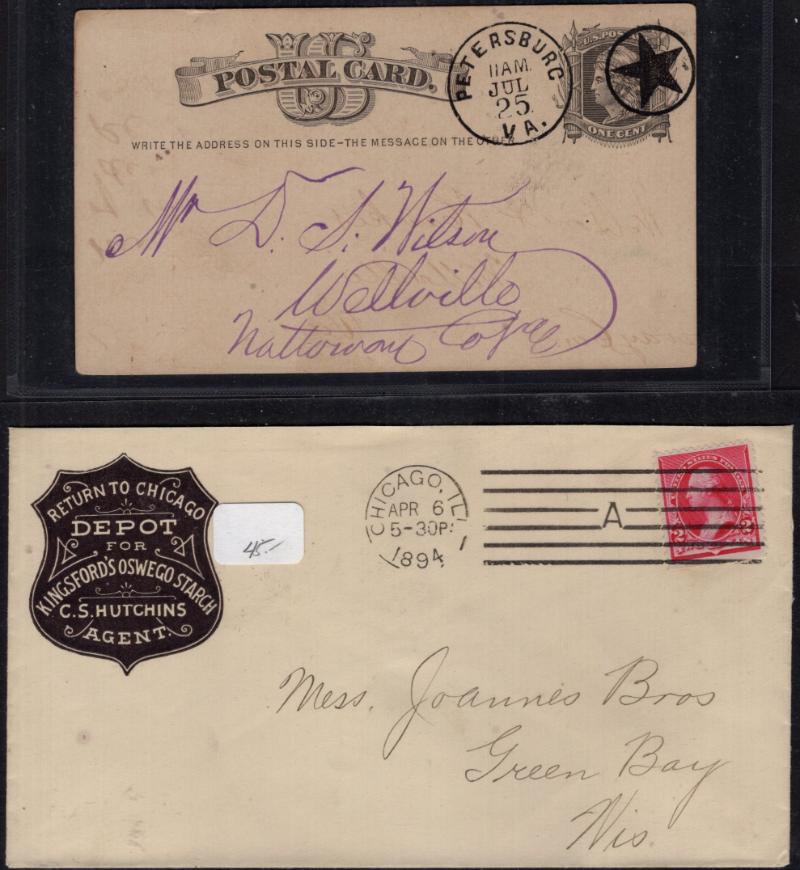 U.S. POSTAL CARD.
PETERSBURG
11AM
JUL
25
VA.
ONE CENT
WRITE THE ADDRESS ON THIS SIDE-THE MESSAGE ON THE OTHER
Mr D. S. Wilson
Wellville
Nattoway Co
RETURN TO CHICAGO
DEPOT
FOR
KINGSFORD'S OSWEGO STARCH
C.S. HUTCHINS
AGENT.
45.-
CHICAGO, ILL
APR 6
5-30P
1894
A
2 2
Mess. Joannes Bros
Green Bay
Wis.